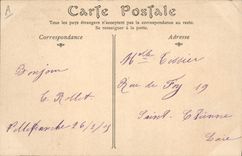 A
Carte Postale
Tous les pays étrangers n'acceptent pas la correspondance au recto.
Se renseigner à la poste.
Correspondance
Adresse
Bonjour
E. Rollet
Villefranche 26/2/15
Mlle Tissier
Rue de Foy 19
Saint-Etienne
Loire